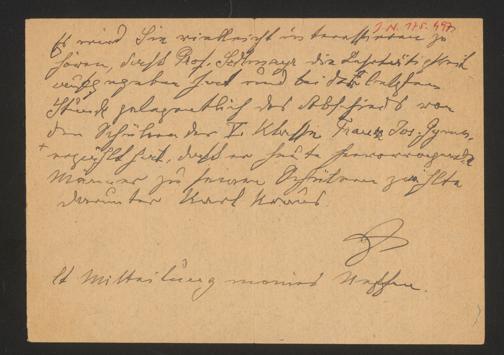 J. N. 175.497
Es wird Sie vielleicht interessieren zu
hören, dass Prof. Sedlmayr die Lehrtätigkeit
aufgegeben hat und bei der letzten
Stunde gelegentlich des Abschieds von
den Schülern der V. Klasse Franz Jos. Gymn.
erzählt hat, dass er heute hervorragende
Männer zu seinen Schülern zählte
darunter Karl Kraus
lt Mitteilung meines Neffen.